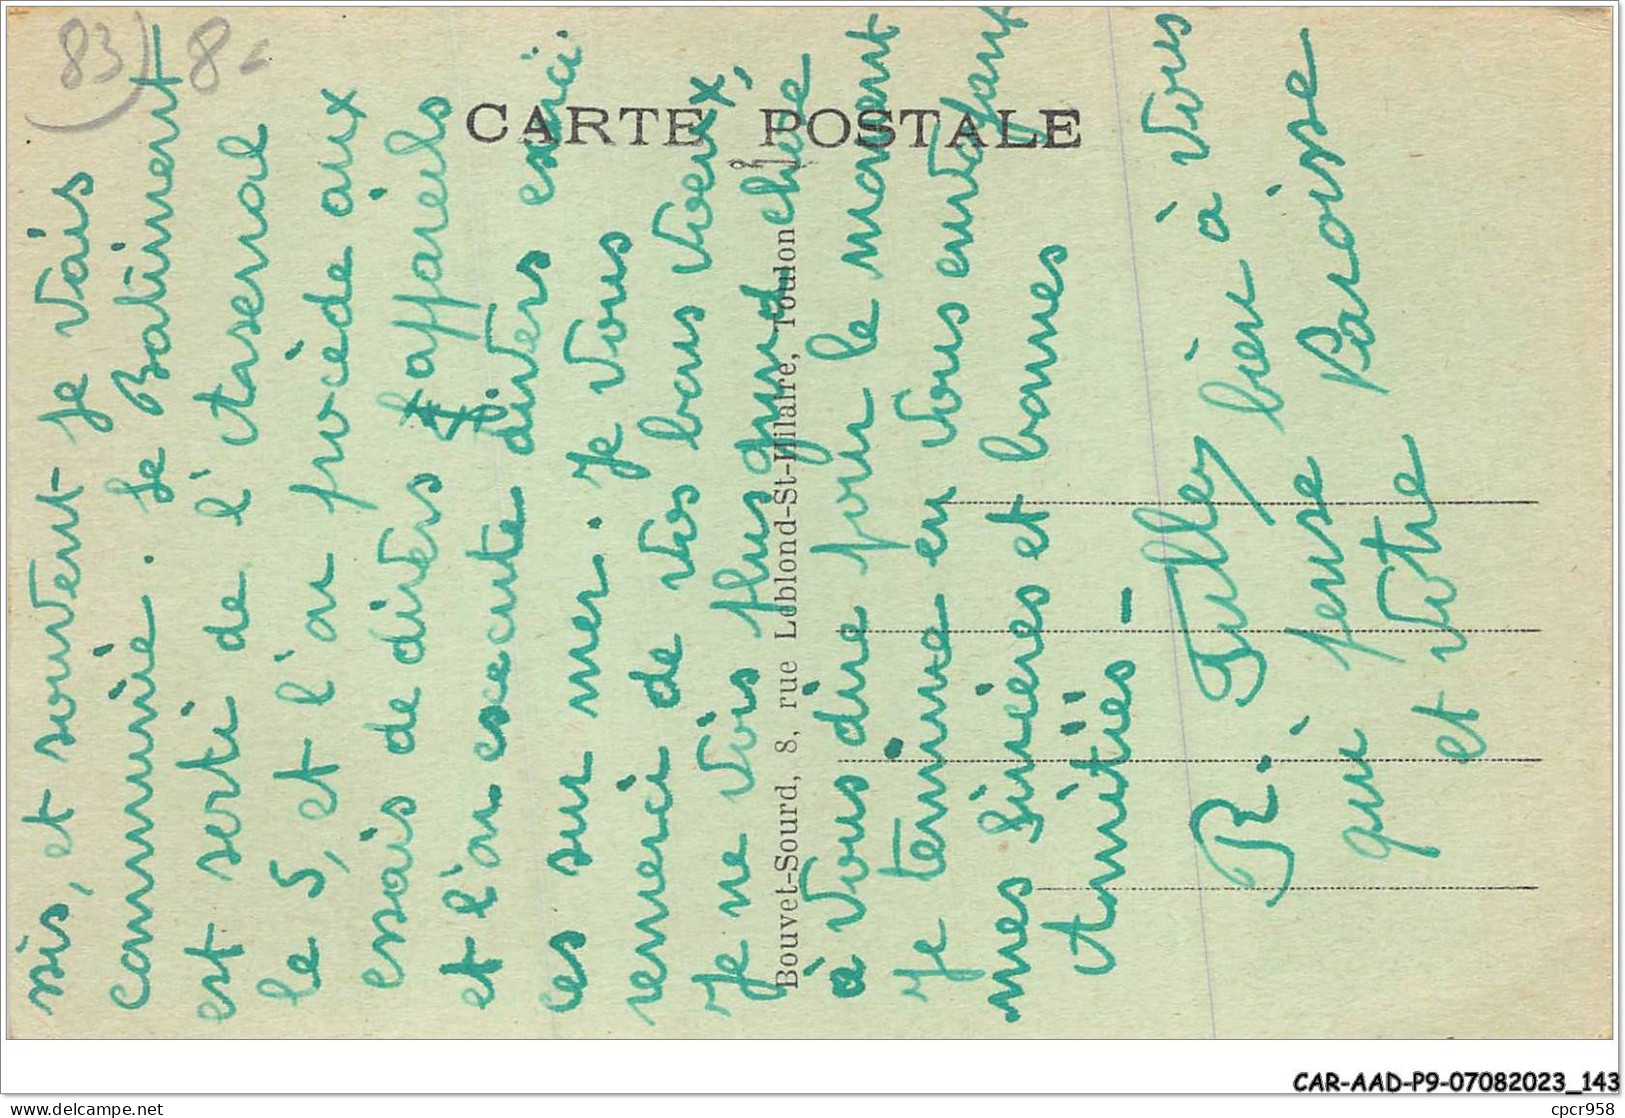 83) 8
CARTE POSTALE
Bouvet-Sourd, 8, rue Leblond-St-Hilaire, Toulon
sis, et souvent je vais
communié. Le Batiment
est sorti de l'Arsenal
le 5, et l'on procède aux
essais de divers appareils
et l'on execute divers exerci
ces sur mer. Je vous
remerci de vos bons voeux,
Je ne vois plus grand chose
à vous dire pour le moment
Je termine en vous envoyant
mes sincères et bonnes
Amitiés -
R. Tulley bien à vous
qui pense
et votre Paroisse
CAR-AAD-P9-07082023_143
cpcr958